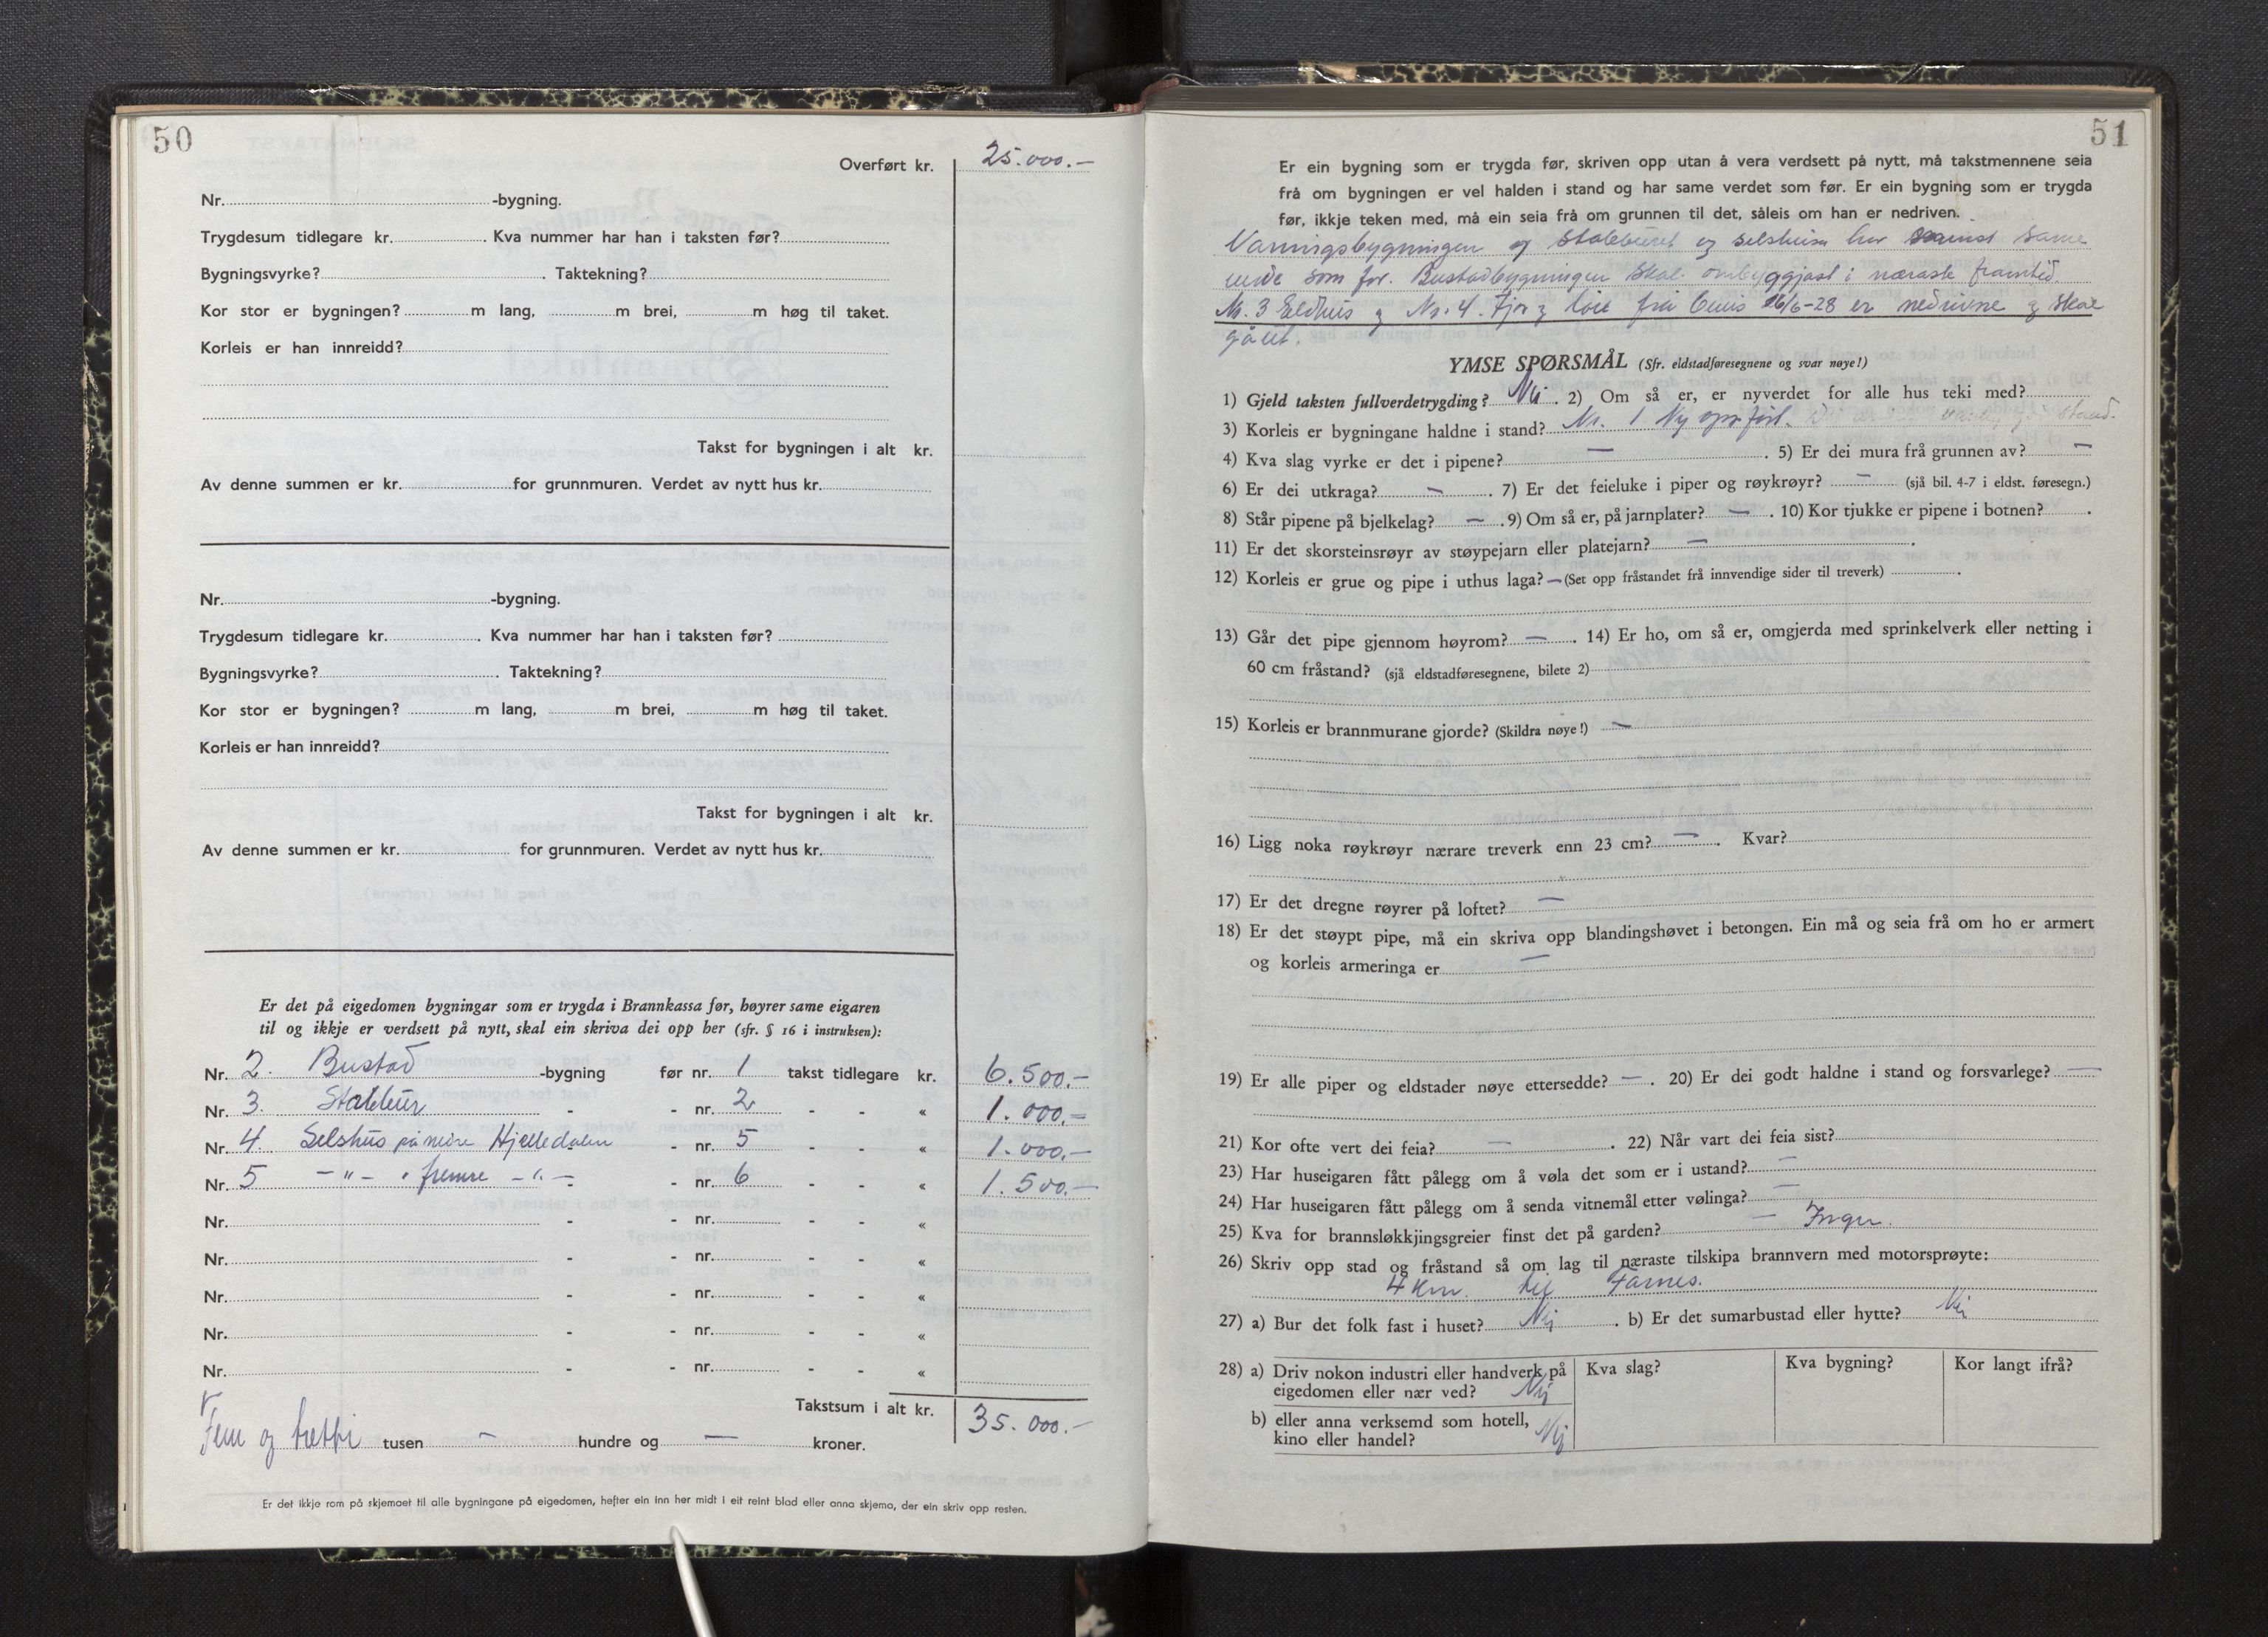 50
Overført kr. 25.000.–
Nr. -bygning.
Trygdesum tidlegare kr. . Kva nummer har han i taksten før?
Bygningsvyrke? . Taktekning?
Kor stor er bygningen? m lang, m brei, m høg til taket.
Korleis er han innreidd?
Takst for bygningen i alt kr.
Av denne summen er kr. for grunnmuren. Verdet av nytt hus kr.
Nr. -bygning.
Trygdesum tidlegare kr. . Kva nummer har han i taksten før?
Bygningsvyrke? . Taktekning?
Kor stor er bygningen? m lang, m brei, m høg til taket.
Korleis er han innreidd?
Takst for bygningen i alt kr.
Av denne summen er kr. for grunnmuren. Verdet av nytt hus kr.
Er det på eigedomen bygningar som er trygda i Brannkassa før, høyrer same eigaren
til og ikkje er verdsett på nytt, skal ein skriva dei opp her (sfr. § 16 i instruksen):
Nr. 2. Bustad -bygning før nr. 1 takst tidlegare kr. 6.500.–
Nr. 3. Stabbur - - nr. 2 - - « 1.000.–
Nr. 4. Selshus på nedre Hjelledalen - - nr. 5 - - « 1.000.–
Nr. 5 – " – " fremre – " – - - nr. 6 - - « 1.500.–
Nr. - - nr. - - «
Nr. - - nr. - - «
Nr. - - nr. - - «
Nr. - - nr. - - «
Nr. - - nr. - - «
Takstsum i alt kr. 35.000.–
Fem og tretti tusen – hundre og — kroner.
Er det ikkje rom på skjemaet til alle bygningane på eigedomen, hefter ein inn her midt i eit reint blad eller anna skjema, der ein skriv opp resten.
51
Er ein bygning som er trygda før, skriven opp utan å vera verdsett på nytt, må takstmennene seia
frå om bygningen er vel halden i stand og har same verdet som før. Er ein bygning som er trygda
før, ikkje teken med, må ein seia frå om grunnen til det, såleis om han er nedriven.
Vaningsbygningen og stabburet og selshusa har same
verde som før. Bustadbygningen skal ombyggjast i næraste framtid
Nr. 3 Eldhus og Nr. 4. Fjos og løe frå 16/6-28 er nedrivne og skal
gå ut.
YMSE SPØRSMÅL (Sfr. eldstadføresegnene og svar nøye!)
1) Gjeld taksten fullverdetrygding? Nei . 2) Om så er, er nyverdet for alle hus teki med?
3) Korleis er bygningane haldne i stand? Nr. 1 Ny oppført. stand.
4) Kva slag vyrke er det i pipene? — . 5) Er dei mura frå grunnen av? —
6) Er dei utkraga? — . 7) Er det feieluke i piper og røykrøyr? — (sjå bil. 4-7 i eldst. føresegn.)
8) Står pipene på bjelkelag? — . 9) Om så er, på jarnplater? — . 10) Kor tjukke er pipene i botnen? .
11) Er det skorsteinsrøyr av støypejarn eller platejarn? — .
12) Korleis er grue og pipe i uthus laga? — (Set opp fråstandet frå innvendige sider til treverk) .
13) Går det pipe gjennom høyrom? — . 14) Er ho, om så er, omgjerda med sprinkelverk eller netting i
60 cm fråstand? (sjå eldstadføresegnene, bilete 2)
15) Korleis er brannmurane gjorde? (Skildra nøye!) —
16) Ligg noka røykrøyr nærare treverk enn 23 cm? — . Kvar?
17) Er det dregne røyrer på loftet? —
18) Er det støypt pipe, må ein skriva opp blandingshøvet i betongen. Ein må og seia frå om ho er armert
og korleis armeringa er —
19) Er alle piper og eldstader nøye ettersedde? — . 20) Er dei godt haldne i stand og forsvarlege? —
21) Kor ofte vert dei feia? — . 22) Når vart dei feia sist?
23) Har huseigaren fått pålegg om å vøla det som er i ustand? —
24) Har huseigaren fått pålegg om å senda vitnemål etter vølinga? —
25) Kva for brannsløkkjingsgreier finst det på garden? — Ingen.
26) Skriv opp stad og fråstand så om lag til næraste tilskipa brannvern med motorsprøyte:
4 Km. til Farnes.
27) a) Bur det folk fast i huset? Nei . b) Er det sumarbustad eller hytte? Nei
28) a) Driv nokon industri eller handverk på
eigedomen eller nær ved? Nei
Kva slag? Kva bygning? Kor langt ifrå?
b) eller anna verksemd som hotell,
kino eller handel? Nei